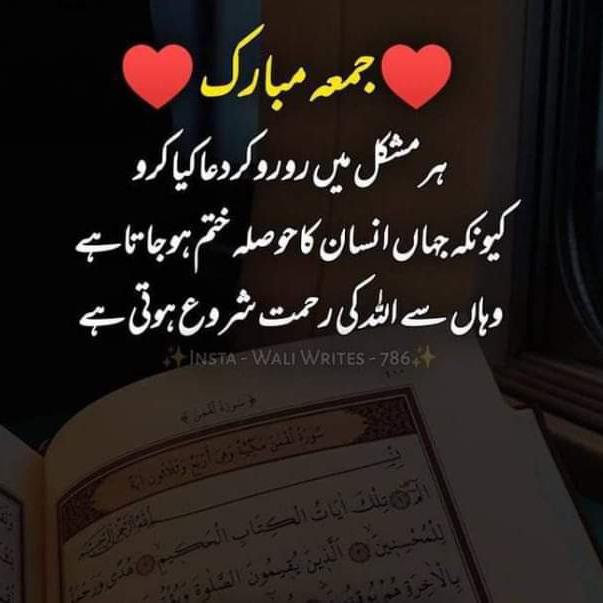 ❤️جمعہ مبارک❤️
ہر مشکل میں رو رو کر دعا کیا کرو
کیونکہ جہاں انسان کا حوصلہ ختم ہو جاتا ہے
وہاں سے اللہ کی رحمت شروع ہوتی ہے
✨INSTA - WALI WRITES - 786✨
سورة لقمن
سورة لقمن مكية وهي أربع وثلاثون آية
الٓمٓ تِلْكَ آيَاتُ الْكِتَابِ الْحَكِيمِ هُدًى وَرَحْمَةً
لِلْمُحْسِنِينَ الَّذِينَ يُقِيمُونَ الصَّلَوةَ
بِالْآخِرَةِ هُمْ يُوقِنُونَ